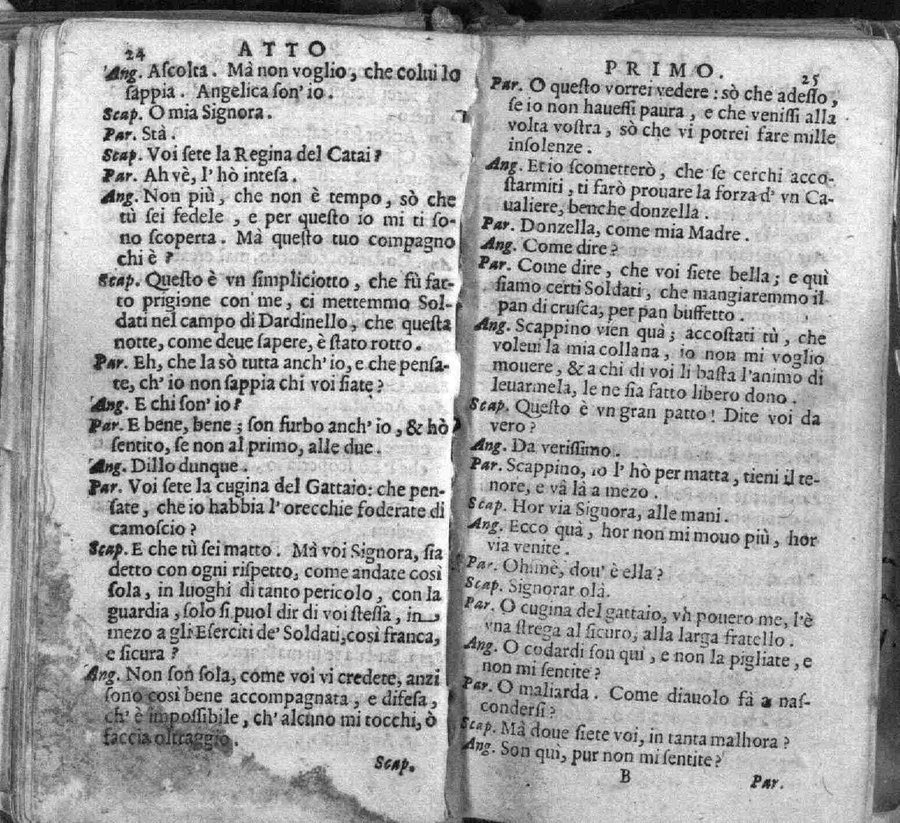 24 ATTO
Ang. Aſcolta. Mà non voglio, che colui lo
ſappia. Angelica ſon' io.
Scap. O mia Signora.
Par. Stà.
Scap. Voi ſete la Regina del Catai?
Par. Ah vè, l' hò inteſa.
Ang. Non più, che non è tempo, sò che
tù ſei fedele, e per queſto io mi ti ſo-
no ſcoperta. Mà queſto tuo compagno
chi è?
Scap. Queſto è vn ſimpliciotto, che fù fat-
to prigione con me, ci mettemmo Sol-
dati nel campo di Dardinello, che queſta
notte, come deue ſapere, è ſtato rotto.
Par. Eh, che la sò tutta anch' io, e che penſa-
te, ch' io non ſappia chi voi ſiate?
Ang. E chi ſon' io?
Par. E bene, bene; ſon furbo anch' io, & hò
ſentito, ſe non al primo, alle due.
Ang. Dillo dunque.
Par. Voi ſete la cugina del Gattaio: che pen-
ſate, che io habbia l' orecchie foderate di
camoſcio?
Scap. E che tù ſei matto. Mà voi Signora, ſia
detto con ogni riſpetto, come andate così
ſola, in luoghi di tanto pericolo, con la
guardia, ſolo ſi puol dir di voi ſteſſa, in
mezo a gli Eſerciti de' Soldati, così franca,
e ſicura?
Ang. Non ſon ſola, come voi vi credete, anzi
ſono così bene accompagnata, e difeſa,
ch' è impoſſibile, ch' alcuno mi tocchi, ò
faccia oltraggio.
Scap.
PRIMO. 25
Par. O queſto vorrei vedere: sò che adeſſo,
ſe io non haueſſi paura, e che veniſſi alla
volta voſtra, sò che vi potrei fare mille
inſolenze.
Ang. Et io ſcometterò, che ſe cerchi acco-
ſtarmiti, ti farò prouare la forza d' vn Ca-
ualiere, benche donzella.
Par. Donzella, come mia Madre.
Ang. Come dire?
Par. Come dire, che voi ſiete bella; e quì
ſiamo certi Soldati, che mangiaremmo il
pan di cruſca, per pan buffetto.
Ang. Scappino vien quà; accoſtati tù, che
voleui la mia collana, io non mi voglio
mouere, & a chi di voi li baſta l'animo di
leuarmela, le ne ſia fatto libero dono.
Scap. Queſto è vn gran patto! Dite voi da
vero?
Ang. Da veriſſimo.
Par. Scappino, io l' hò per matta, tieni il te-
nore, e và là a mezo.
Scap. Hor via Signora, alle mani.
Ang. Ecco quà, hor non mi mouo più, hor
via venite.
Par. Ohimè, dou' è ella?
Scap. Signorar olà.
Par. O cugina del gattaio, vh pouero me, l'è
vna ſtrega al ſicuro, alla larga fratello.
Ang. O codardi ſon quì, e non la pigliate, e
non mi ſentite?
Par. O maliarda. Come diauolo fà a naſ-
conderſi?
Scap. Mà doue ſiete voi, in tanta malhora?
Ang. Son quì, pur non mi ſentite?
B Par.